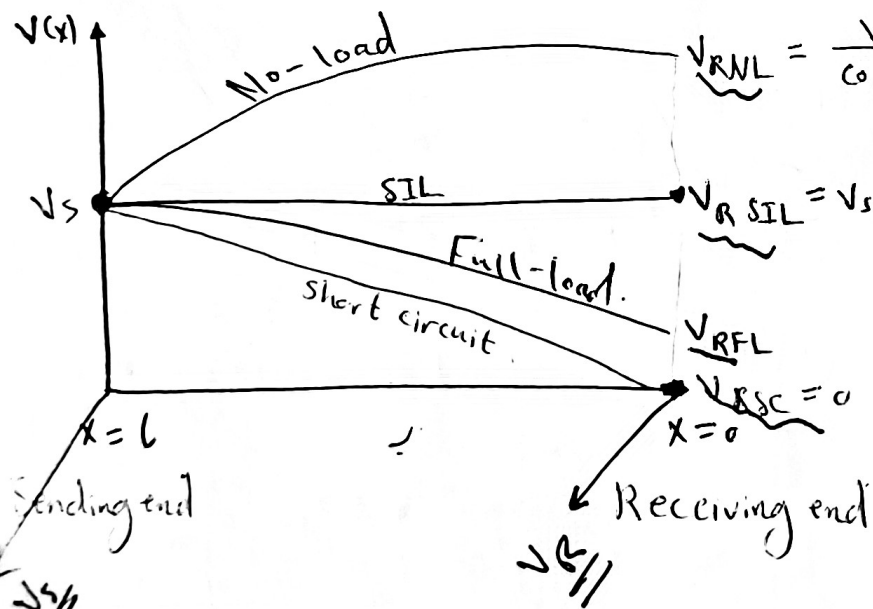 V(x)
No-load
V_RNL = V / co
Vs
SIL
V_R SIL = Vs
Full-load.
short circuit
V_RFL
V_RSC = 0
x = l
x = 0
Sending end
Receiving end
Vs
V_R